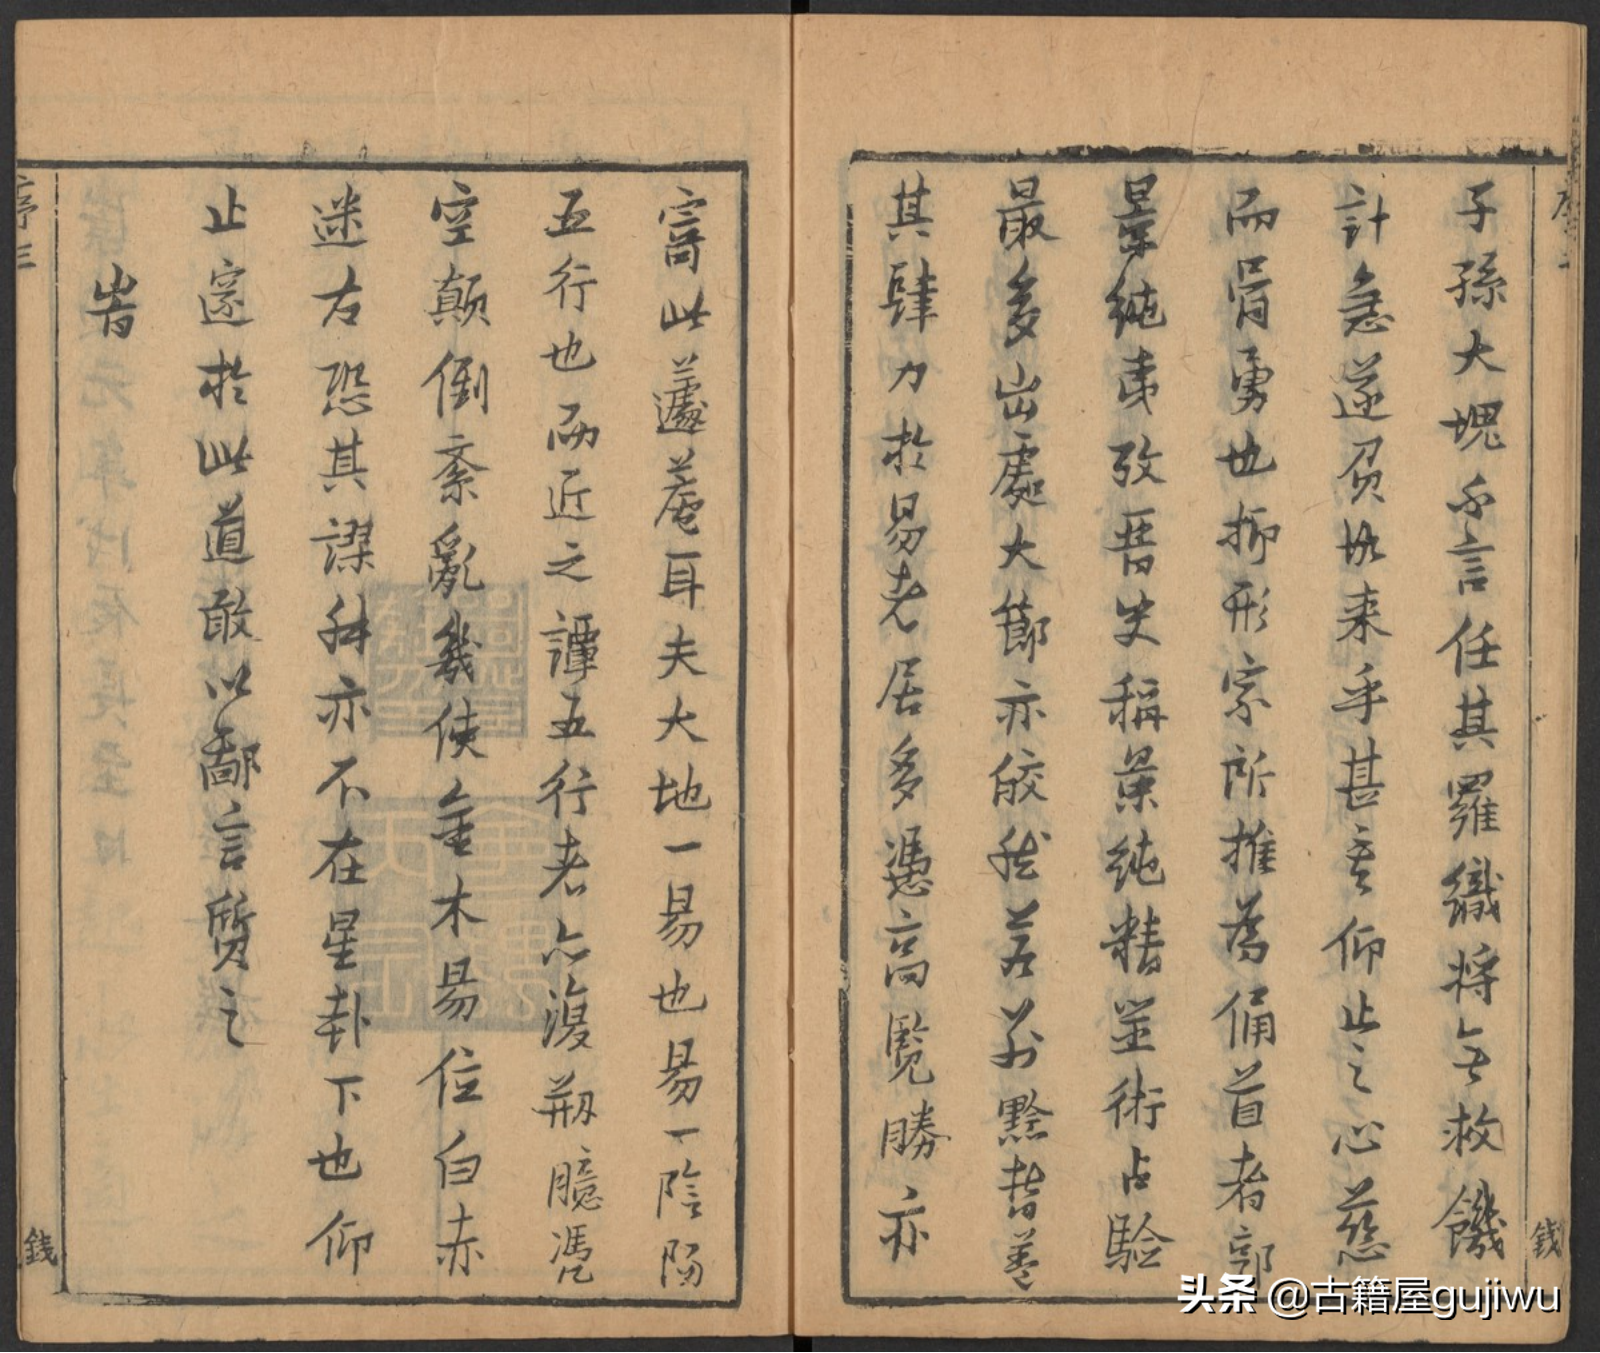 子孫大塊不言任其羅織將無救饑
計急遂忍攸来乎甚哉仰止之心慈
而胥勇也抑形家所推為俑首者郭
景純夷攷晉史稱景純精筮術占驗
最多出處大節亦皎然若茲黔晢葢
其肆力於易老居多憑高覽勝亦
寄此蘧菴耳夫大地一易也易一陰陽
五行也而近之譚五行者亦復剏臆憑
空顛倒紊亂幾使金木易位白赤
迷方恐其謬舛亦不在星卦下也仰
止邃於此道敢以鄙言質之
旹
序三
錢
錢
头条 @古籍屋gujiwu